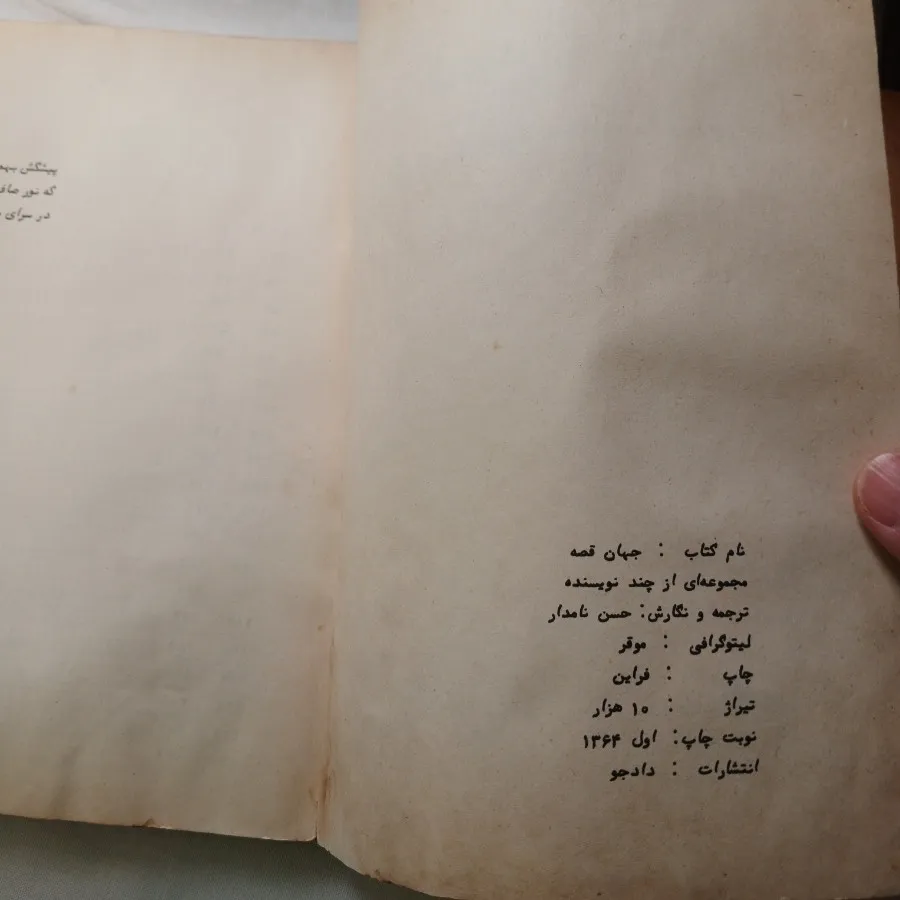 نام کتاب : جهان قصه
مجموعه‌ای از چند نویسنده
ترجمه و نگارش: حسن نامدار
لیتوگرافی : موقر
چاپ : فراین
تیراژ : ۱۰ هزار
نوبت چاپ: اول ۱۳۶۴
انتشارات : دادجو
پیشکش
که نور
در سرای